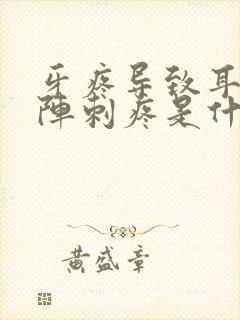 牙疼导致耳
陣刺疼是什
黄盛章